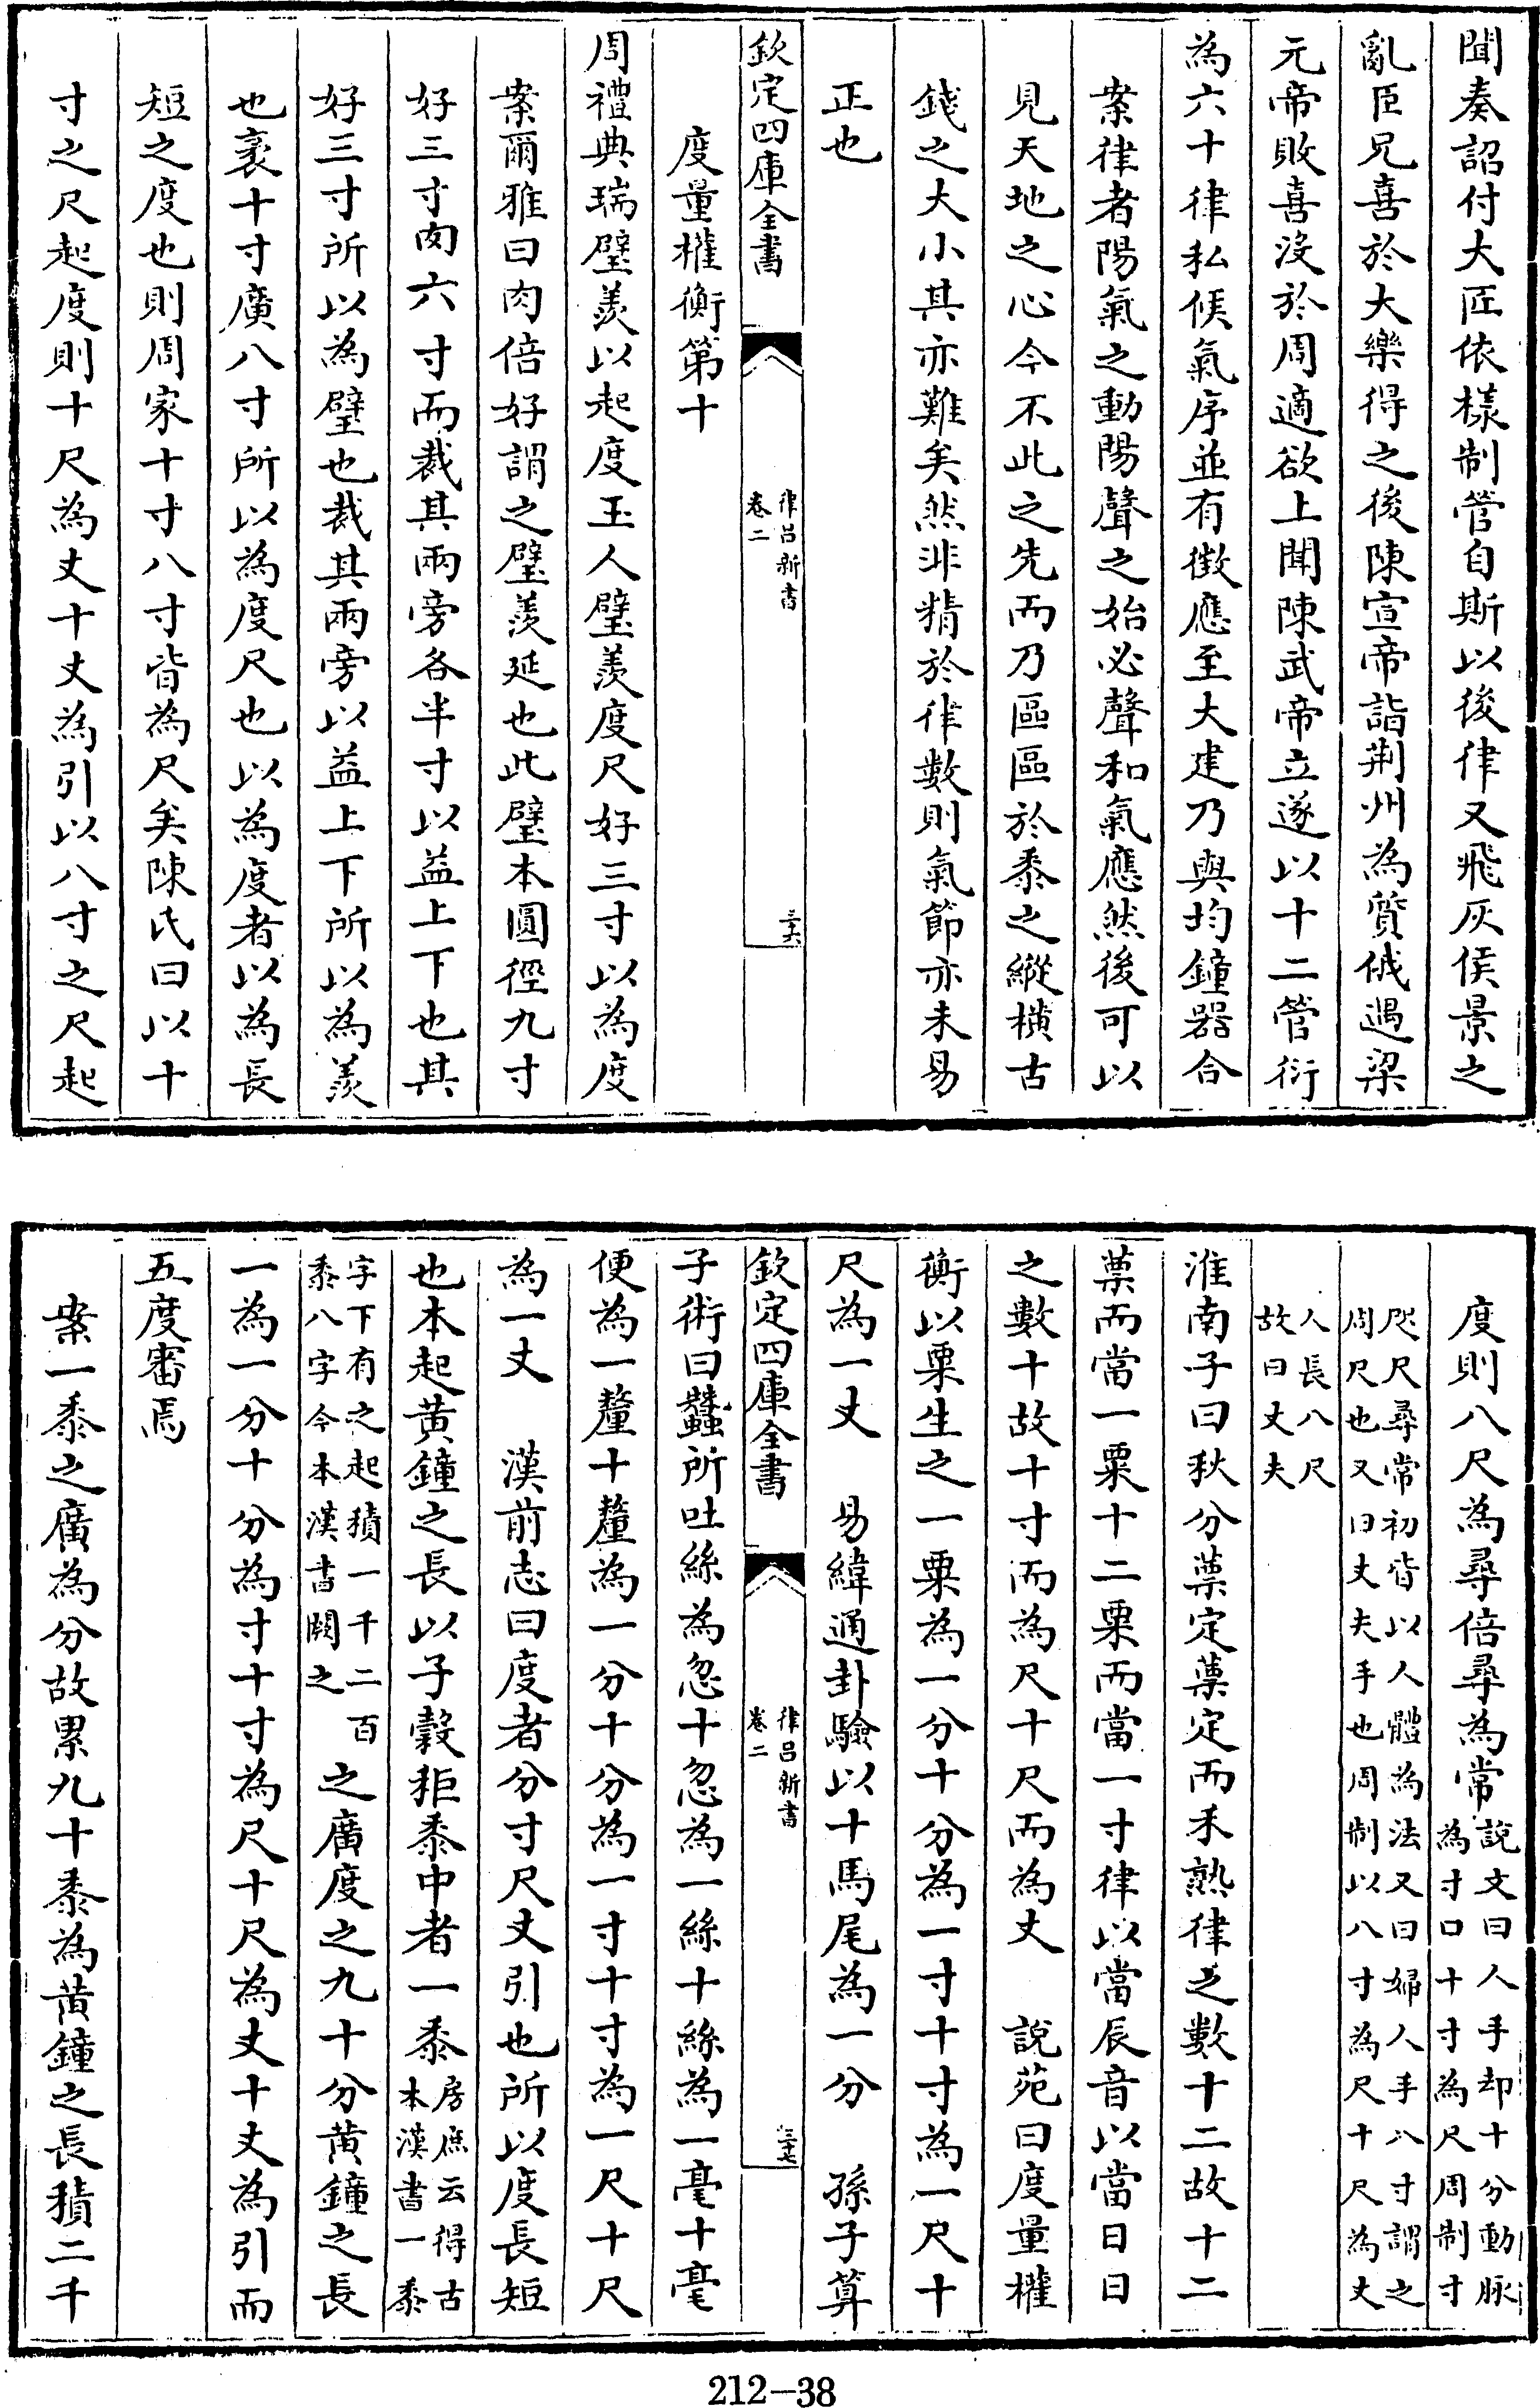 聞奏詔付大匠依樣制管自斯以後律又飛灰侯景之
亂臣兄喜於大樂得之後陳宣帝詣荆州為質俄遇梁
元帝敗喜沒於周適欲上聞陳武帝立遂以十二管衍
為六十律私候氣序並有徴應至大建乃與均鐘器合
案律者陽氣之動陽聲之始必聲和氣應然後可以
見天地之心今不此之先而乃區區於黍之縱横古
錢之大小其亦難矣然非精於律數則氣節亦未易
正也
欽定四庫全書
律吕新書
卷二
三六
度量權衡第十
周禮典瑞璧羨以起度玉人璧羨度尺好三寸以為度
案爾雅曰肉倍好謂之璧羨延也此璧本圓徑九寸
好三寸肉六寸而裁其兩旁各半寸以益上下也其
好三寸所以為璧也裁其兩旁以益上下所以為羨
也袤十寸廣八寸所以為度尺也以為度者以為長
短之度也則周家十寸八寸皆為尺矣陳氏曰以十
寸之尺起度則十尺為丈十丈為引以八寸之尺起
度則八尺為尋倍尋為常
說文曰人手却十分動脉
為寸口十寸為尺周制寸
咫尺尋常初皆以人體為法又曰婦人手八寸謂之
周尺也又曰丈夫手也周制以八寸為尺十尺為丈
人長八尺
故曰丈夫
淮南子曰秋分蔈定蔈定而禾熟律之數十二故十二
蔈而當一粟十二粟而當一寸律以當辰音以當日日
之數十故十寸而為尺十尺而為丈　說苑曰度量權
衡以粟生之一粟為一分十分為一寸十寸為一尺十
尺為一丈　易緯通卦驗以十馬尾為一分　孫子算
欽定四庫全書
律吕新書
卷二
三七
子術曰蠶所吐絲為忽十忽為一絲十絲為一毫十毫
便為一釐十釐為一分十分為一寸十寸為一尺十尺
為一丈　漢前志曰度者分寸尺丈引也所以度長短
也本起黄鐘之長以子穀秬黍中者一黍
房庶云得古
本漢書一黍
字下有之起積一千二百
黍八字今本漢書闕之
之廣度之九十分黄鐘之長
一為一分十分為寸十寸為尺十尺為丈十丈為引而
五度審焉
案一黍之廣為分故累九十黍為黄鐘之長積二千
212-38